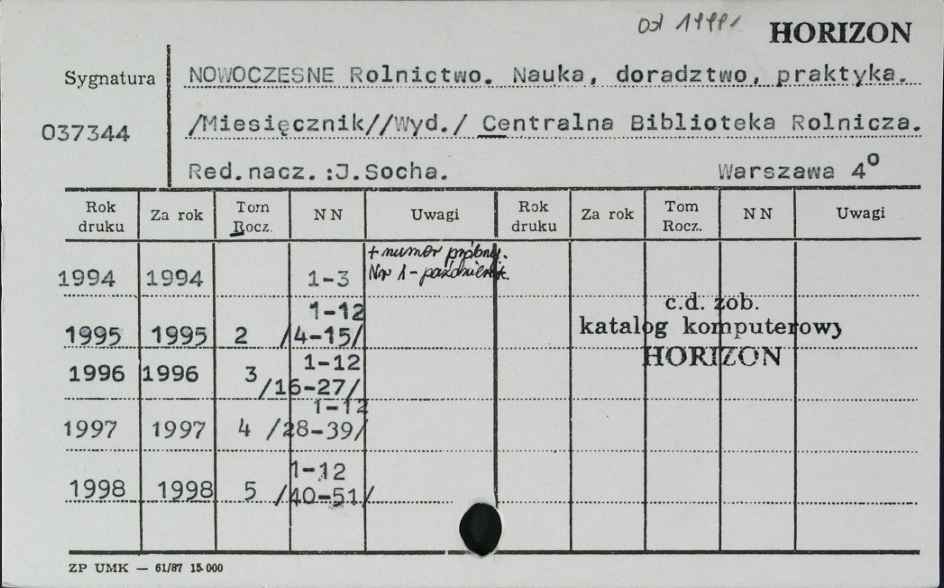 od 1999r HORIZON
Sygnatura NOWOCZESNE Rolnictwo. Nauka, doradztwo, praktyka.
037344 /Miesięcznik//Wyd./ Centralna Biblioteka Rolnicza.
Red.nacz.:J.Socha. Warszawa 4º
Rok druku Za rok Tom Rocz. NN Uwagi Rok druku Za rok Tom Rocz. NN Uwagi
+ numer próbny.
1994 1994 1-3 Nr 1 - październik.
1-12
1995 1995 2 /4-15/
1-12
1996 1996 3 /16-27/
1-12
1997 1997 4 /28-39/
1-12
1998 1998 5 /40-51/
c.d. zob.
katalog komputerowy
HORIZON
ZP UMK — 61/87 15.000